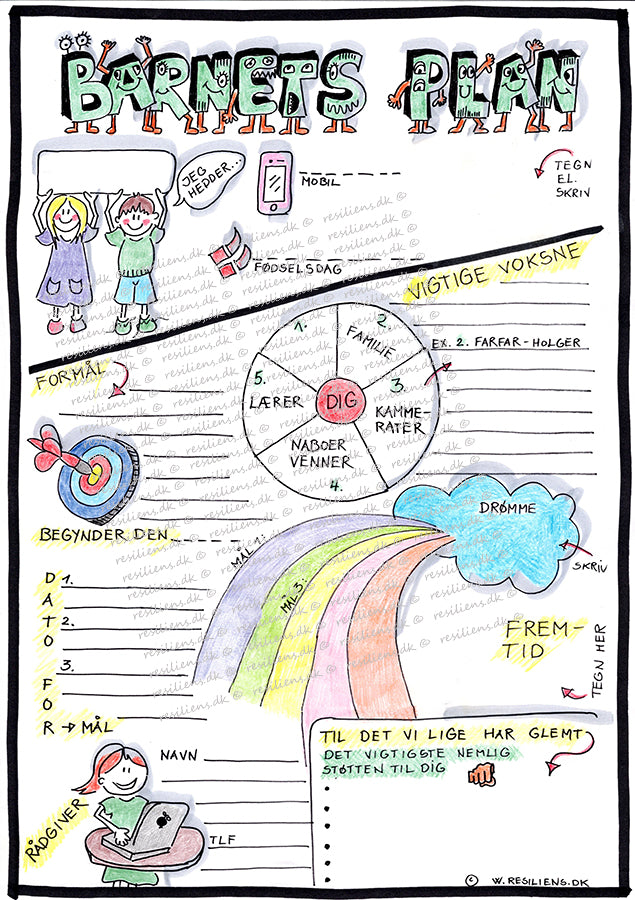 BARNETS PLAN
JEG
HEDDER...
MOBIL
TEGN
EL.
SKRIV
FØDSELSDAG
VIGTIGE VOKSNE
EX. 2. FARFAR-HOLGER
1.
2.
FAMILIE
3.
KAMME-
RATER
5.
LÆRER
DIG
NABOER
VENNER
4.
FORMÅL
BEGYNDER DEN...
DRØMME
SKRIV
MÅL 1:
MÅL 3:
FREM-
TID
TEGN HER
DATO FOR
1.
2.
3.
→ MÅL
TIL DET VI LIGE HAR GLEMT
DET VIGTIGSTE NEMLIG
STØTTEN TIL DIG
NAVN
TLF
RÅDGIVER
© W.RESILIENS.DK
resiliens.dk ©